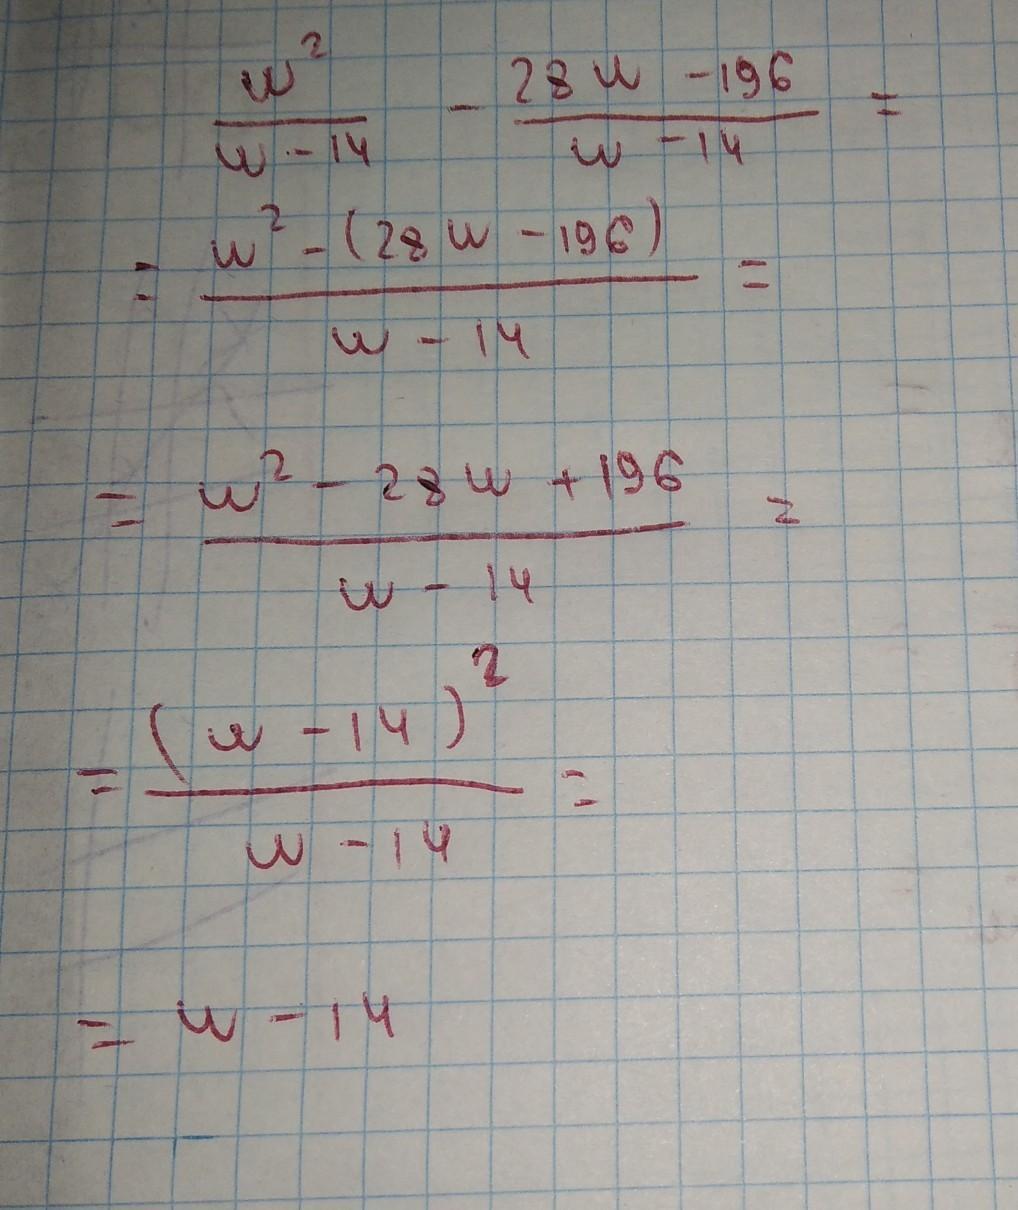 w²/(w - 14) - (28w - 196)/(w - 14) =
= (w² - (28w - 196))/(w - 14) =
= (w² - 28w + 196)/(w - 14) =
= (w - 14)²/(w - 14) =
= w - 14